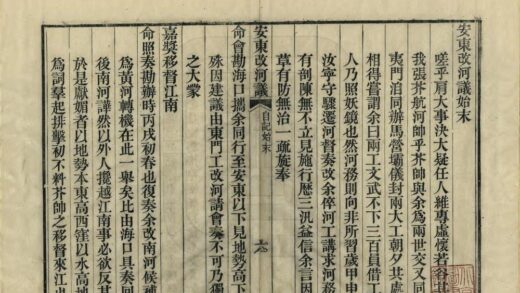 安東改河議始末
嗟乎肩大事決大疑任人維專虛懷若谷其
我張芥航河帥乎芥帥與余爲兩世交又同
夷門洎同辦馬營壩儀封兩大工朝夕共處
相得嘗謂余曰兩工文武不下三百員借工
人乃照妖鏡也然河務則向非所習歲甲申
汝寧守驟遷河督奏改余倅河工講求河務
有剖陳無不立見施行歷三汛益信余言因
草有防無治一疏旋奉
安東改河議 自記始末
命會勘海口攜余同行至安東以下見地勢高下
殊因建議由東門工改河請會奏不可乃獨
之大蒙
嘉獎移督江南
命照奏勘辦時丙戌初春也復奏余改南河候補
爲黃河轉機在此一舉矣比由海口具奏回
後南河譁然以外人攬越江南事必欲反其
於是獻媚者以地本東高西窪以水高地
爲詞羣起排擊初不料芥帥之移督來江